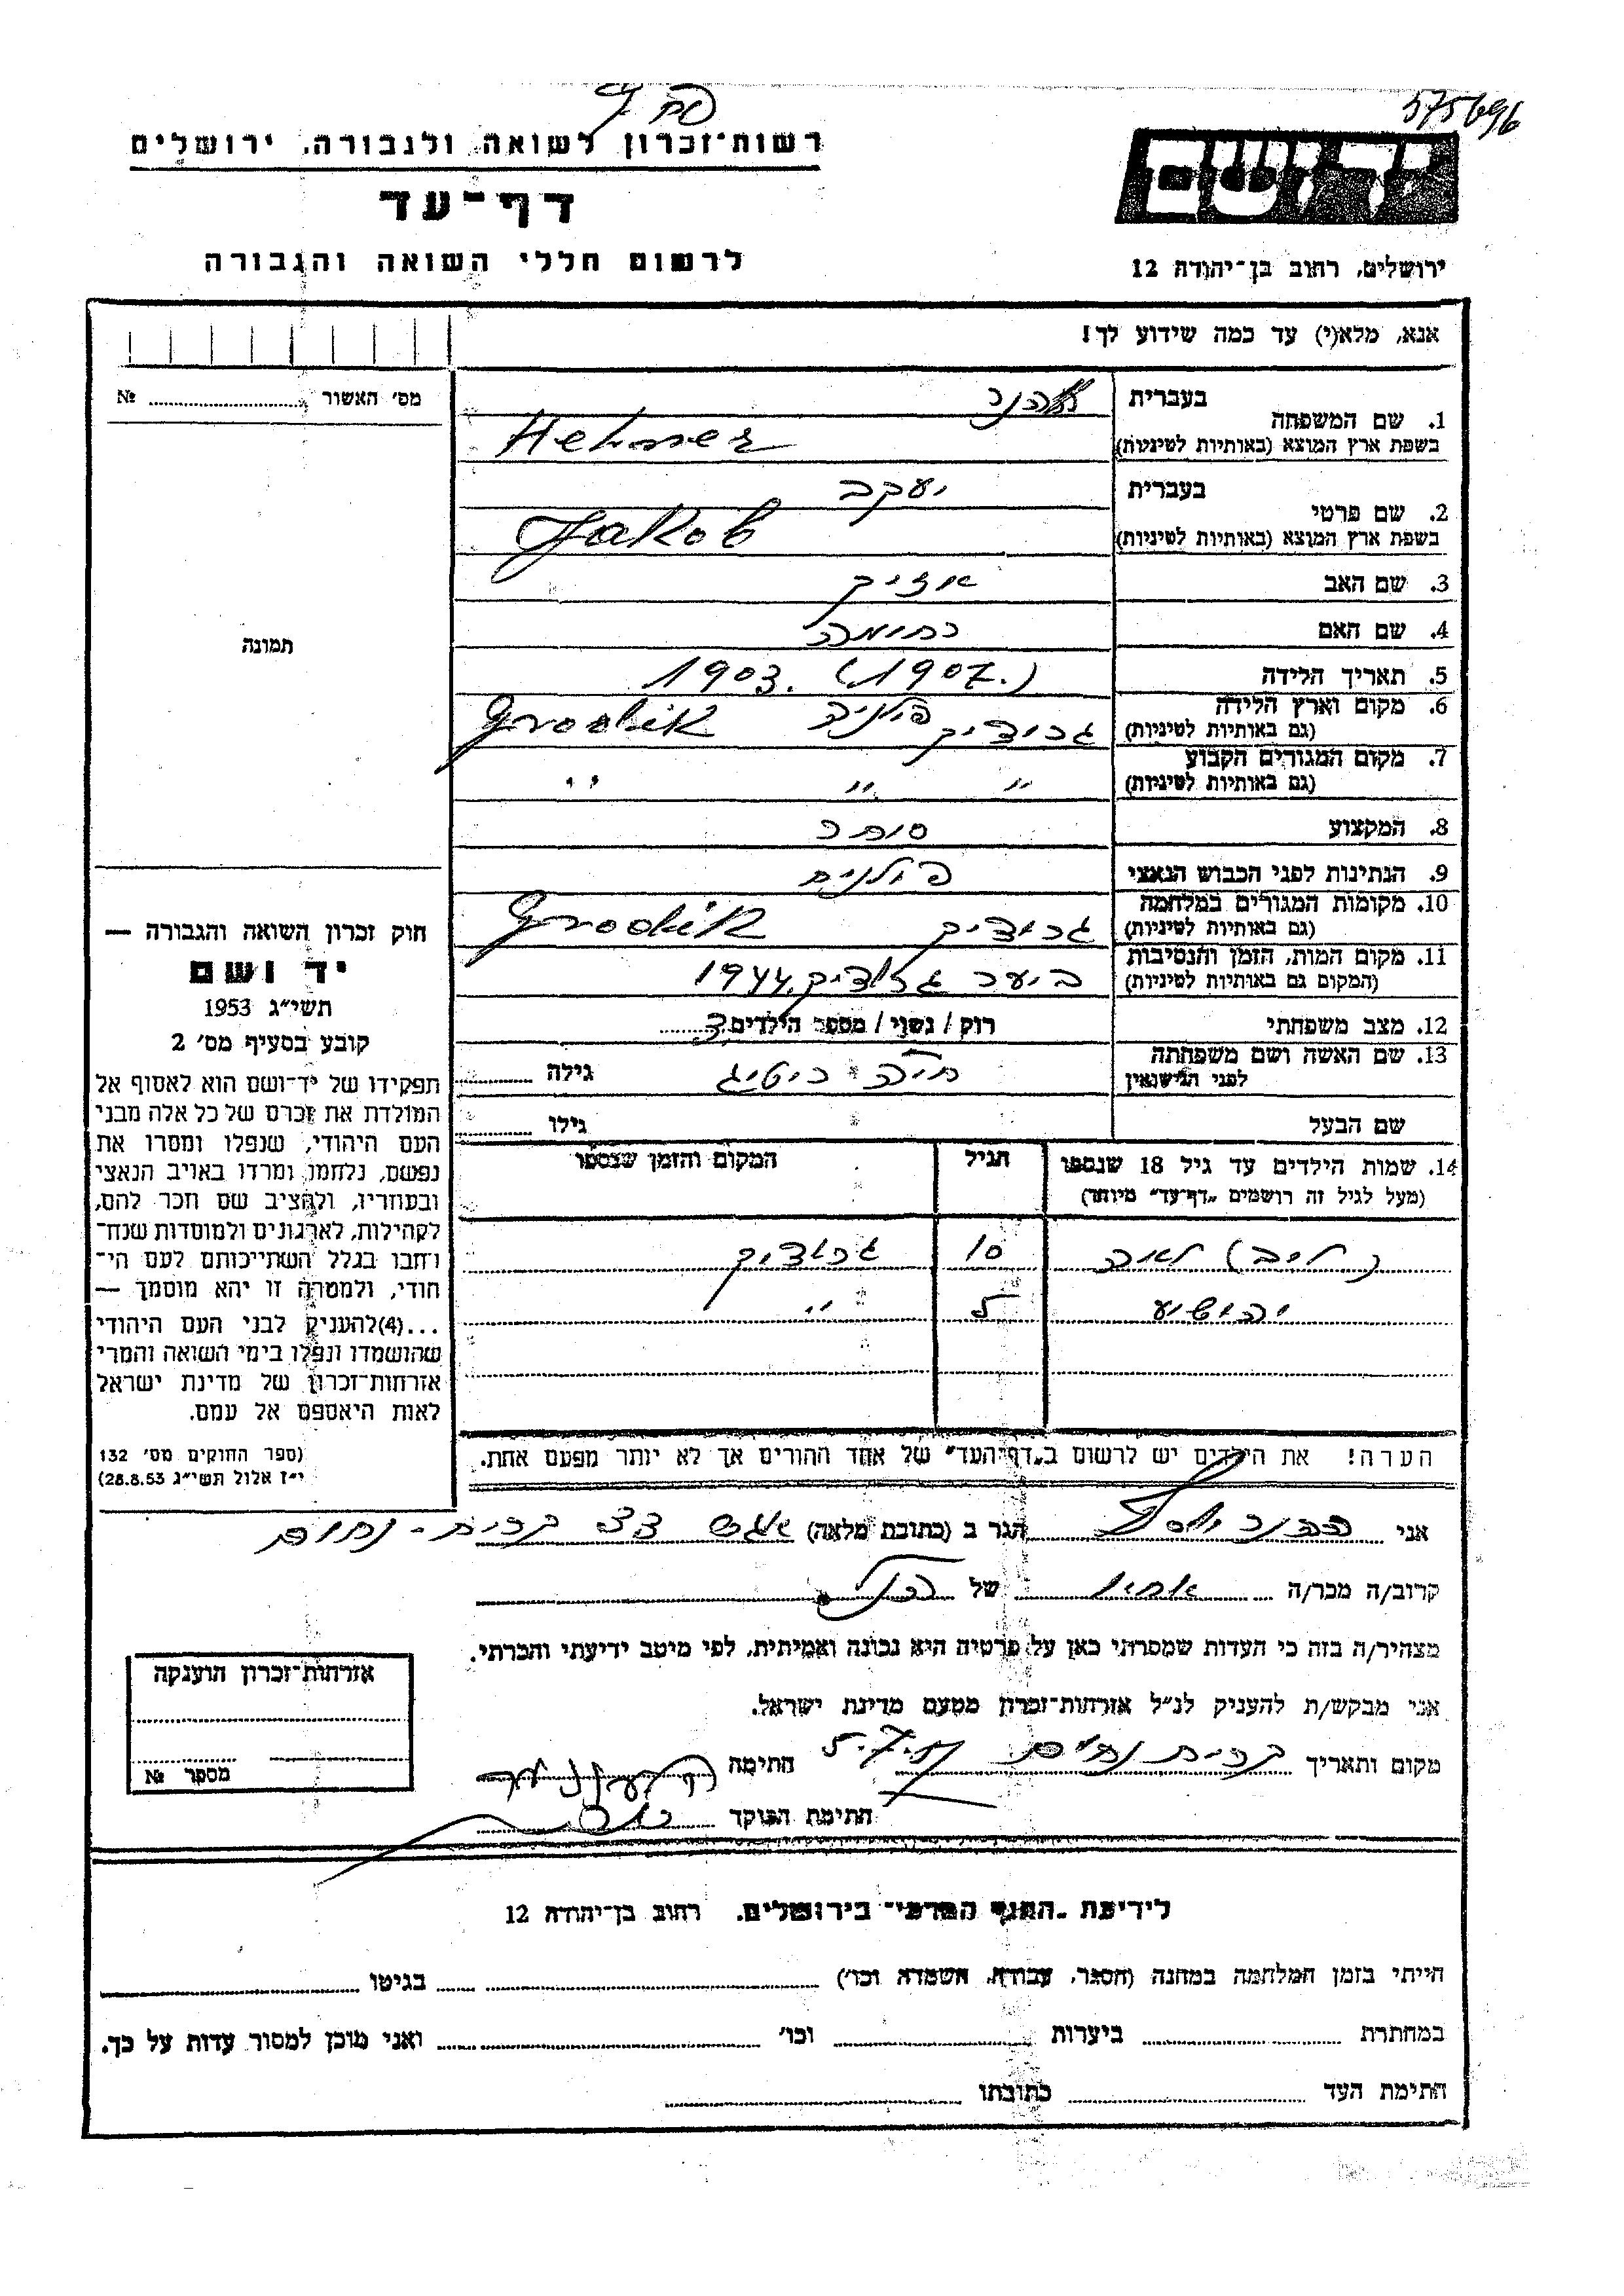 575696
רשות־זכרון לשואה ולגבורה, ירושלים
יד ושם
דף־עד
לרשום חללי השואה והגבורה
ירושלים, רחוב בן־יהודה 12
אנא, מלא(י) עד כמה שידוע לך!
מס׳ האשור № 
1. שם המשפחה בעברית
בשפת ארץ המוצא (באותיות לטיניות) Hehner
2. שם פרטי בעברית יעקב
בשפת ארץ המוצא (באותיות לטיניות) Jakob
3. שם האב אייזיק
4. שם האם נחומה
5. תאריך הלידה 1903. (1907.)
6. מקום וארץ הלידה (גם באותיות לטיניות) גרודיק פולניה Grodik
7. מקום המגורים הקבוע (גם באותיות לטיניות) " " "
8. המקצוע סוחר
9. הנתינות לפני הכבוש הנאצי פולנית
10. מקומות המגורים במלחמה (גם באותיות לטיניות) גרודיק Grodik
11. מקום המות, הזמן והנסיבות (המקום גם באותיות לטיניות) ביער גרודיק, 1944
12. מצב משפחתי רוק / נשוי / מספר הילדים
13. שם האשה ושם משפחתה לפני הנישואין חיה גילה
שם הבעל גילו
14. שמות הילדים עד גיל 18 שנספו הגיל המקום והזמן שנספו
(מעל לגיל זה רושמים „דף־עד” מיוחד)
לאה 10 גרודיק
יהושע 5 "
הערה! את הילדים יש לרשום ב„דף־העד” של אחד ההורים אך לא יותר מפעם אחת.
תמונה
חוק זכרון השואה והגבורה —
יד ושם
תשי״ג 1953
קובע בסעיף מס׳ 2
תפקידו של יד־ושם הוא לאסוף אל
המולדת את זכרם של כל אלה מבני
העם היהודי, שנפלו ומסרו את
נפשם, נלחמו ומרדו באויב הנאצי
ובעוזריו, ולהציב שם וזכר להם,
לקהילות, לארגונים ולמוסדות שנח־
רבו בגלל השתייכותם לעם הי־
הודי, ולמטרה זו יהא מוסמך —
...(4)להעניק לבני העם היהודי
שהושמדו ונפלו בימי השואה והמרי
אזרחות־זכרון של מדינת ישראל
לאות היאספם אל עמם.
(ספר החוקים מס׳ 132
י״ז אלול תשי״ג 28.8.53)
אני הגר ב (כתובת מלאה) קרית-נחום
קרוב/ה מכר/ה אחיו של
מצהיר/ה בזה כי העדות שמסרתי כאן על פרטיה היא נכונה ואמיתית, לפי מיטב ידיעתי והכרתי.
אני מבקש/ת להעניק לנ״ל אזרחות־זכרון מטעם מדינת ישראל.
מקום ותאריך קרית נחום החימה
חתימת הפוקד
אזרחות־זכרון הוענקה
מספר №
לידיעת רחוב בן־יהודה 12
הייתי בזמן המלחמה במחנה (הסגר, עבודה, השמדה וכו׳) בגיטו
במחתרת ביערות וכו׳ ואני מוכן למסור עדות על כך.
חתימת העד כתובתו